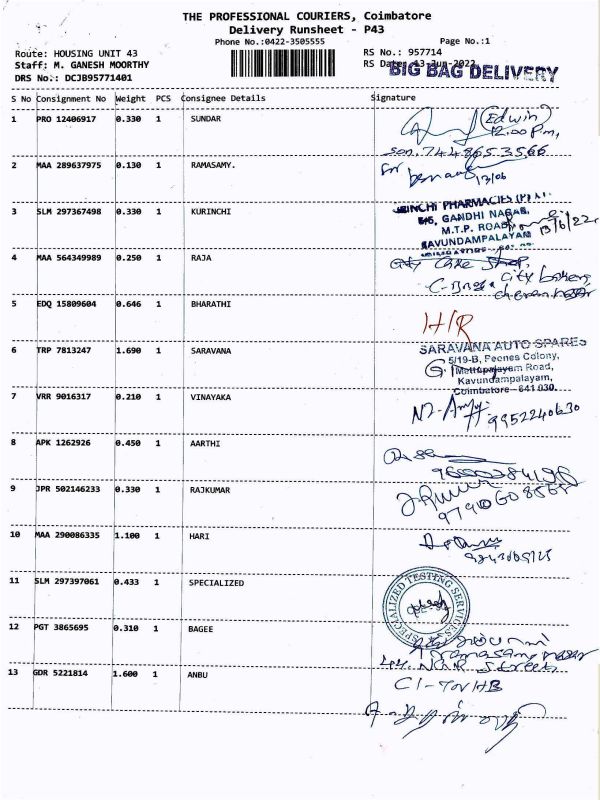 THE PROFESSIONAL COURIERS, Coimbatore
Delivery Runsheet - P43
Phone No.:0422-3505555
Page No.:1
Route: HOUSING UNIT 43
RS No.: 957714
Staff: M. GANESH MOORTHY
RS Date: 13-Jun-2022
BIG BAG DELIVERY
DRS No.: DCJB95771401
S No Consignment No Weight PCS Consignee Details Signature
1 PRO 12406917 0.330 1 SUNDAR
(Edwin)
12.00 Pm,
2 MAA 289637975 0.130 1 RAMASAMY.
13/06
3 SLM 297367498 0.330 1 KURINCHI
PHARMACIES (P)
5/6, GANDHI NAGAR,
M.T.P. ROAD
KAVUNDAMPALAYAM
13/6/22
4 MAA 564349989 0.250 1 RAJA
city
5 EDQ 15809604 0.646 1 BHARATHI
H/R
6 TRP 7813247 1.690 1 SARAVANA
SARAVANA AUTO SPARES
5/19-B, Peenes Colony,
Mettupalayam Road,
Kavundampalayam,
Coimbatore - 641 030.
7 VRR 9016317 0.210 1 VINAYAKA
9952240630
8 APK 1262926 0.450 1 AARTHI
9 JPR 502146233 0.330 1 RAJKUMAR
10 MAA 290086335 1.100 1 HARI
11 SLM 297397061 0.433 1 SPECIALIZED
SPECIALIZED TESTING SERVICES
12 PGT 3865695 0.310 1 BAGEE
Street
13 GDR 5221814 1.600 1 ANBU